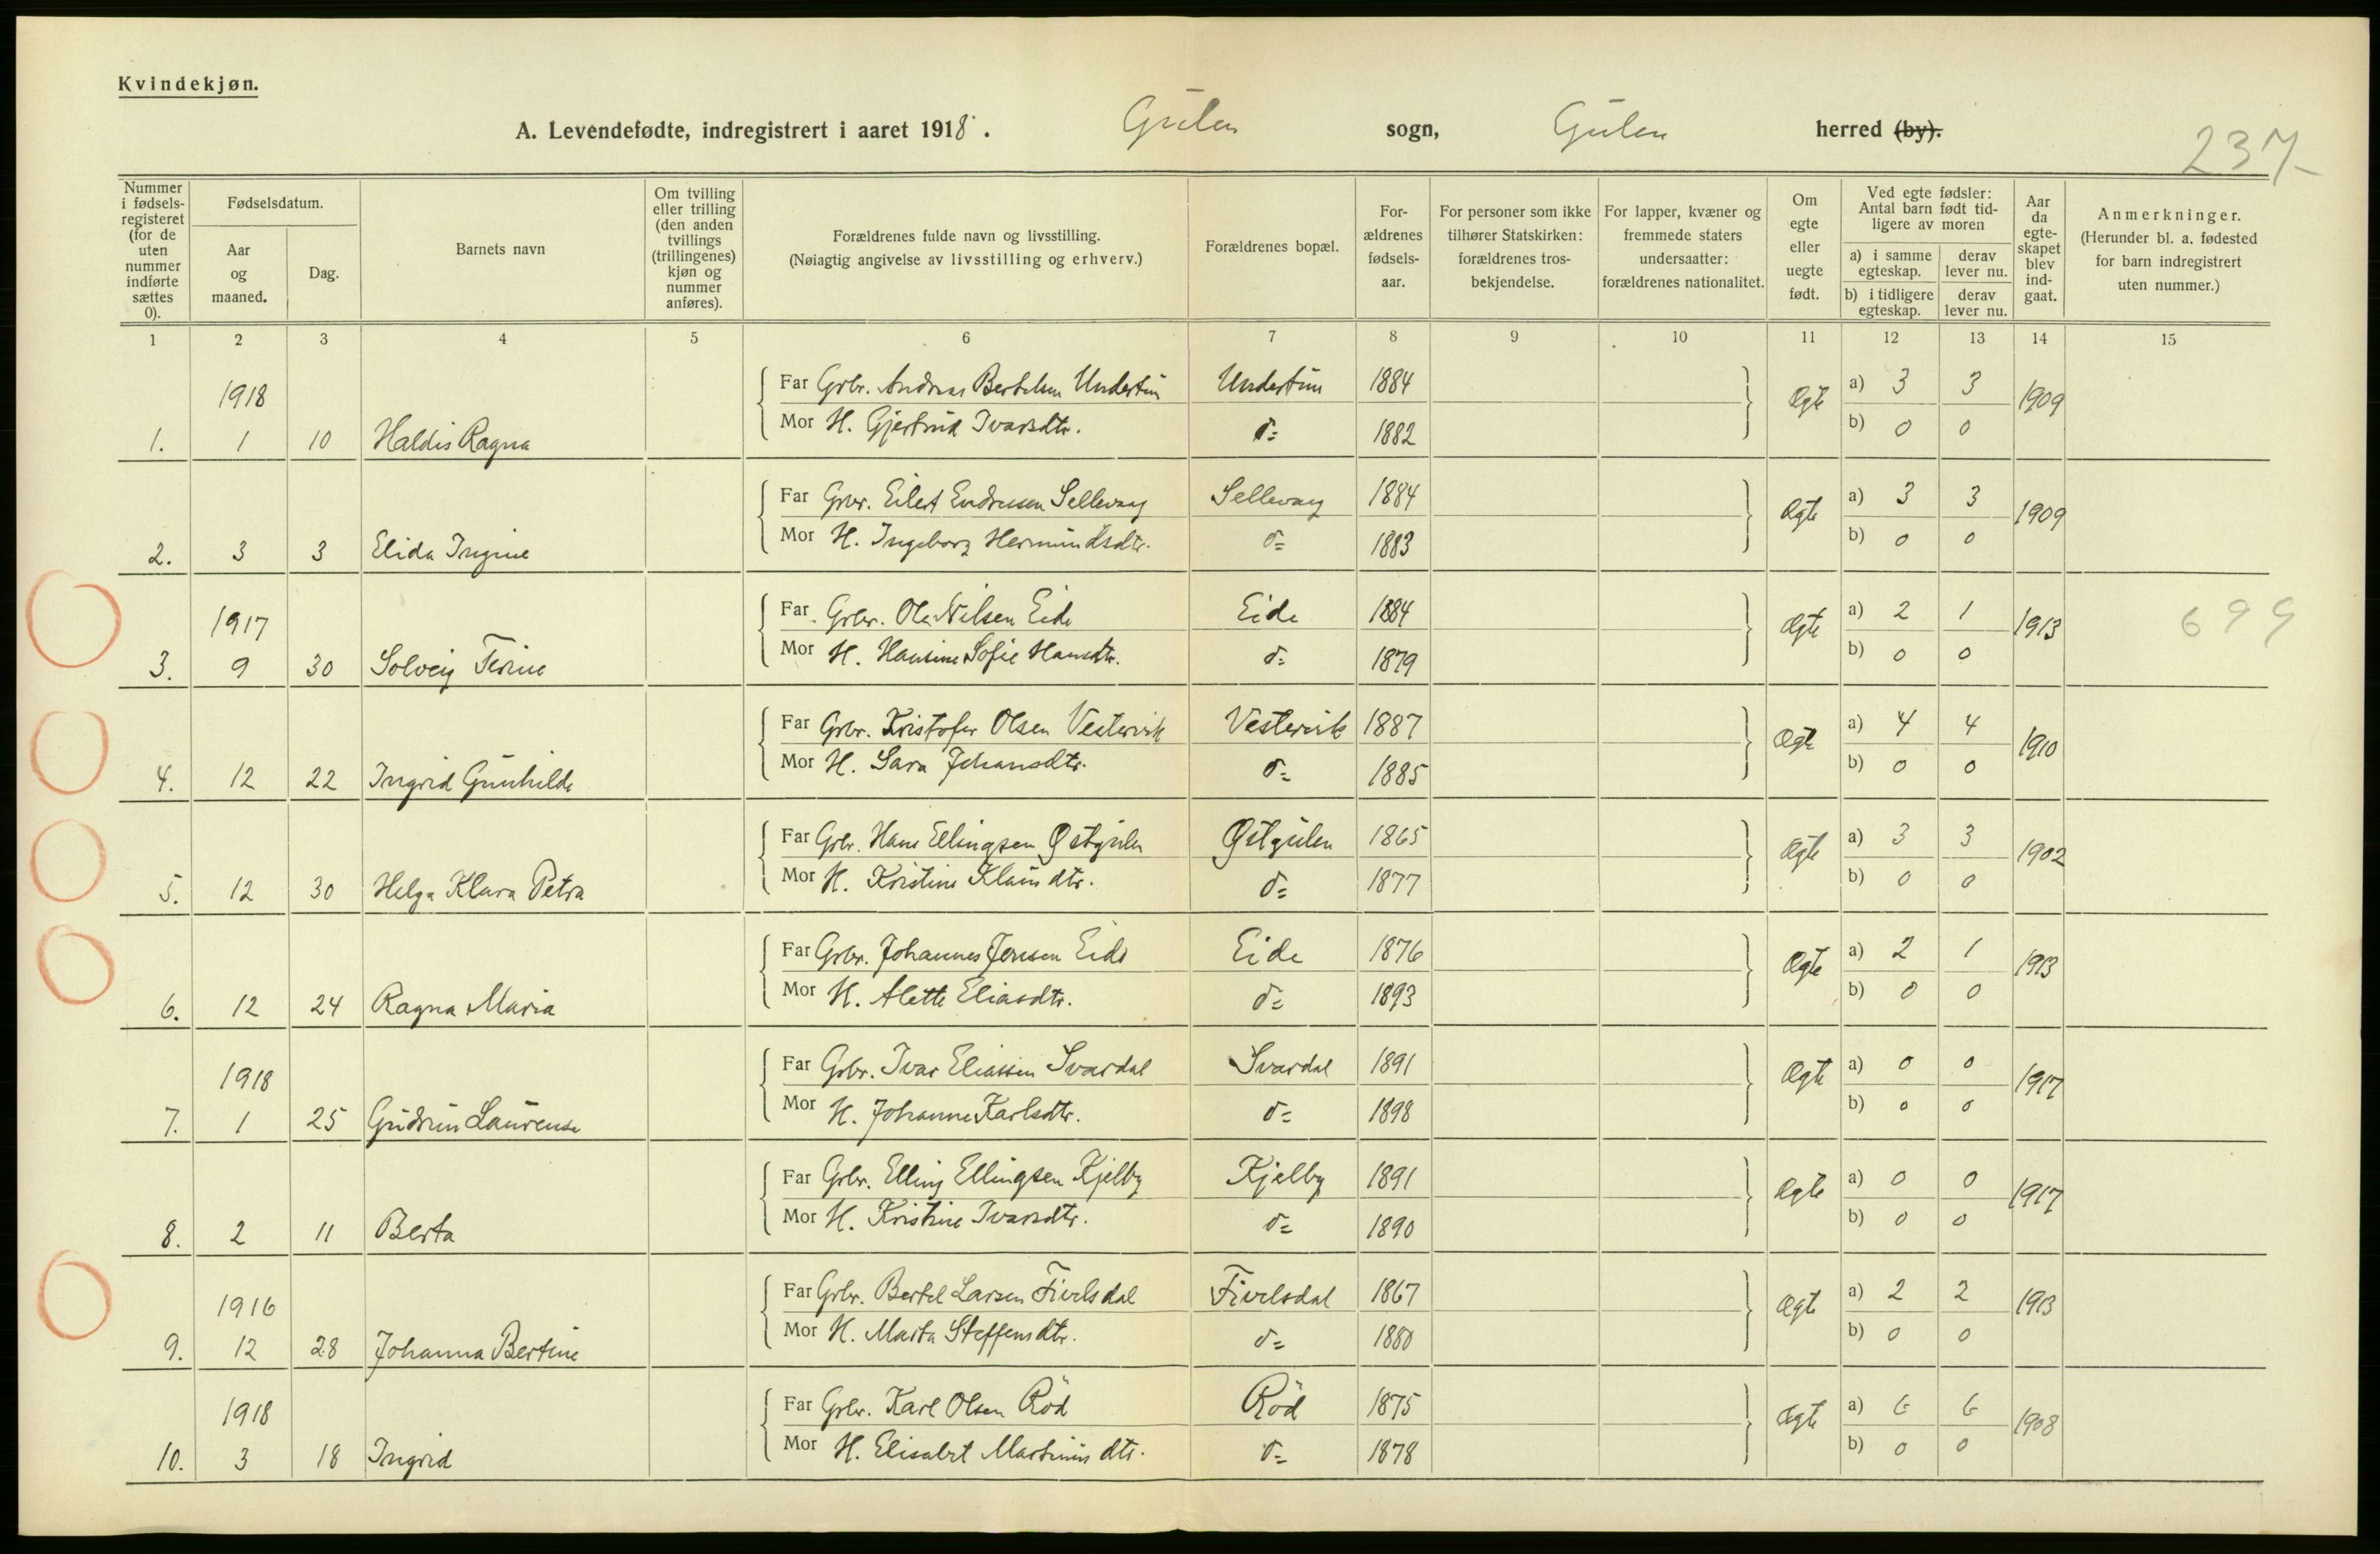 Kvindekjøn.
A. Levendefødte, indregistrert i aaret 1918. Gulen sogn, Gulen herred (by).
237
Nummer i fødsels-registeret (for de uten nummer indførte sættes 0).
Fødselsdatum.
Aar og maaned.
Dag.
Barnets navn
Om tvilling eller trilling (den anden tvillings (trillingenes) kjøn og nummer anføres).
Forældrenes fulde navn og livsstilling. (Nøiagtig angivelse av livsstilling og erhverv.)
Forældrenes bopæl.
For-ældrenes fødsels-aar.
For personer som ikke tilhører Statskirken: forældrenes tros-bekjendelse.
For lapper, kvæner og fremmede staters undersaatter: forældrenes nationalitet.
Om egte eller uegte født.
Ved egte fødsler: Antal barn født tid-ligere av moren
a) i samme egteskap. derav lever nu.
b) i tidligere egteskap. derav lever nu.
Aar da egte-skapet blev ind-gaat.
Anmerkninger. (Herunder bl. a. fødested for barn indregistrert uten nummer.)
1 2 3 4 5 6 7 8 9 10 11 12 13 14 15
1918
Far Grbr. Andreas Bertelsen Undertun Undertun 1884 Ægte a) 3 3 1909
1. 1 10 Haldis Ragna Mor H. Gjertrud Ivarsdtr. d= 1882 b) 0 0
Far Grbr. Eilert Endresen Sellevaag Sellevaag 1884 Ægte a) 3 3 1909
2. 3 3 Elida Ingine Mor H. Ingeborg Hermundsdtr. d= 1883 b) 0 0
1917
Far Grbr. Ole Nilsen Eide Eide 1884 Ægte a) 2 1 1913 699
3. 9 30 Solveig Terine Mor H. Hansine Sofie Hansdtr. d= 1879 b) 0 0
Far Grbr. Kristofer Olsen Vestervik Vestervik 1887 Ægte a) 4 4 1910
4. 12 22 Ingrid Gunhilde Mor H. Sara Johansdtr. d= 1885 b) 0 0
Far Grbr. Hans Ellingsen Østgulen Østgulen 1865 Ægte a) 3 3 1902
5. 12 30 Helga Klara Petra Mor H. Kristine Klausdtr. d= 1877 b) 0 0
Far Grbr. Johannes Jensen Eide Eide 1876 Ægte a) 2 1 1913
6. 12 24 Ragna Maria Mor H. Alette Eliasdtr. d= 1893 b) 0 0
1918
Far Grbr. Ivar Eliassen Svardal Svardal 1891 Ægte a) 0 0 1917
7. 1 25 Gudrun Laurense Mor H. Johanne Karlsdtr. d= 1898 b) 0 0
Far Grbr. Elling Ellingsen Kjelby Kjelby 1891 Ægte a) 0 0 1917
8. 2 11 Berta Mor H. Kristine Ivarsdtr. d= 1890 b) 0 0
1916
Far Grbr. Bertel Larsen Fivelsdal Fivelsdal 1867 Ægte a) 2 2 1913
9. 12 28 Johanna Bertine Mor H. Marta Steffensdtr. d= 1880 b) 0 0
1918
Far Grbr. Karl Olsen Röd Röd 1875 Ægte a) 6 6 1908
10. 3 18 Ingrid Mor H. Elisabet Martinusdtr. d= 1878 b) 0 0